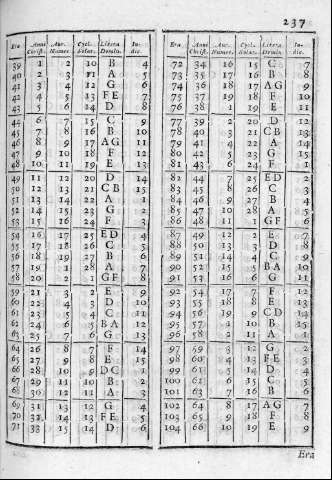 237
Era Anni Christ. Aur. Numer. Cycl. Solar. Litera Domin. In- dic. Era Anni Christ. Aur. Numer. Cycl. Solar. Litera Domin. In- dic.
39 1 2 10 B 4 72 34 16 15 C 7
40 2 3 11 A 5 73 35 17 16 B 8
41 3 4 12 G 6 74 36 18 17 AG 9
42 4 5 13 FE 7 75 37 19 18 F 10
43 5 6 14 D 8 76 38 1 19 E 11
44 6 7 15 C 9 77 39 2 20 D 12
45 7 8 16 B 10 78 40 3 21 CB 13
46 8 9 17 AG 11 79 41 4 22 A 14
47 9 10 18 F 12 80 42 5 23 G 15
48 10 11 19 E 13 81 43 6 24 F 1
49 11 12 20 D 14 82 44 7 25 ED 2
50 12 13 21 CB 15 83 45 8 26 C 3
51 13 14 22 A 1 84 46 9 27 B 4
52 14 15 23 G 2 85 47 10 28 A 5
53 15 16 24 F 3 86 48 11 1 GF 6
54 16 17 25 ED 4 87 49 12 2 E 7
55 17 18 26 C 5 88 50 13 3 D 8
56 18 19 27 B 6 89 51 14 4 C 9
57 19 1 28 A 7 90 52 15 5 BA 10
58 20 2 1 GF 8 91 53 16 6 G 11
59 21 3 2 E 9 92 54 17 7 F 12
60 22 4 3 D 10 93 55 18 8 E 13
61 23 5 4 C 11 94 56 19 9 CD 14
62 24 6 5 BA 12 95 57 1 10 B 15
63 25 7 6 G 13 96 58 2 11 A 1
64 26 8 7 F 14 97 59 3 12 G 2
65 27 9 8 E 15 98 60 4 13 FE 3
66 28 10 9 DC 1 99 61 5 14 D 4
67 29 11 10 B 2 100 61 6 15 C 5
68 30 12 11 A 3 101 63 7 16 B 6
69 31 13 12 G 4 102 64 8 17 AG 7
70 32 14 13 FE 5 103 65 9 18 F 8
71 33 15 14 D 6 104 66 10 19 E 9
Era